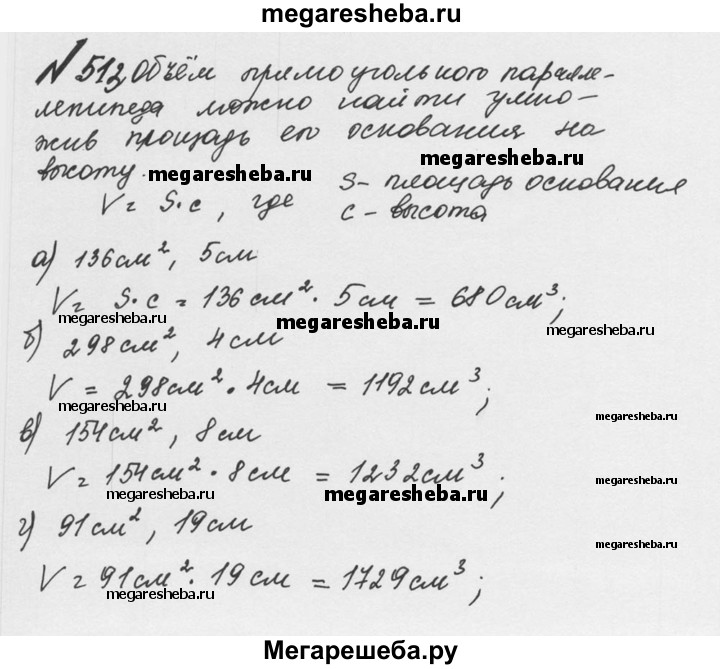 megaresheba.ru
N 513, Объём прямоугольного паралле-
лепипеда можно найти умно-
жив площадь его основания на
megaresheba.ru
высоту.
megaresheba.ru
S - площадь основания
V = S·c, где
c - высота
а) 136 см², 5 см
V = S·c = 136 см² · 5 см = 680 см³;
megaresheba.ru
megaresheba.ru
б) 298 см², 4 см
V = 298 см² · 4 см = 1192 см³;
megaresheba.ru
megaresheba.ru
в) 154 см², 8 см
V = 154 см² · 8 см = 1232 см³;
megaresheba.ru
megaresheba.ru
megaresheba.ru
г) 91 см², 19 см
megaresheba.ru
V = 91 см² · 19 см = 1729 см³;
megaresheba.ru
Мегарешеба.ру